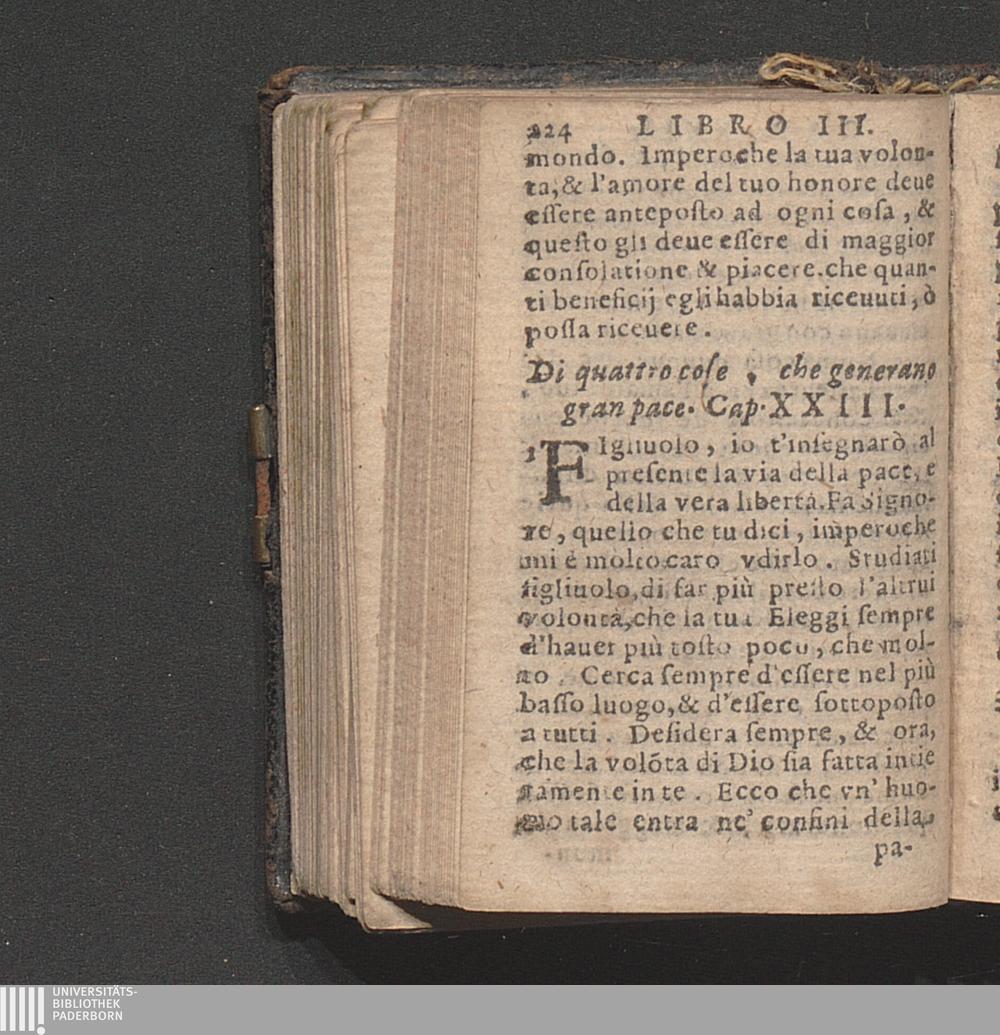 224 LIBRO III.
mondo. Imperoche la tua volon-
ta, & l'amore del tuo honore deue
eſſere antepoſto ad ogni coſa, &
queſto gli deue eſſere di maggior
conſolatione & piacere. che quan-
ti beneficij egli habbia riceuuti, ò
poſſa riceuere.
Di quattro coſe, che generano
gran pace. Cap. XXIII.
1 FIgliuolo, io t'inſegnarò al
preſente la via della pace, e
della vera libertà. Fa Signo-
re, quello che tu dici, imperoche
mi è molto caro vdirlo. Studiati
figliuolo, di far più preſto l'altrui
volontà, che la tua Eleggi ſempre
d'hauer più toſto poco, che mol-
to. Cerca ſempre d'eſſere nel più
baſſo luogo, & d'eſſere ſottopoſto
a tutti. Deſidera ſempre, & ora,
che la volōta di Dio ſia fatta intie
ramente in te. Ecco che vn' huo-
mo tale entra ne' confini della
pa-
UNIVERSITÄTS-
BIBLIOTHEK
PADERBORN